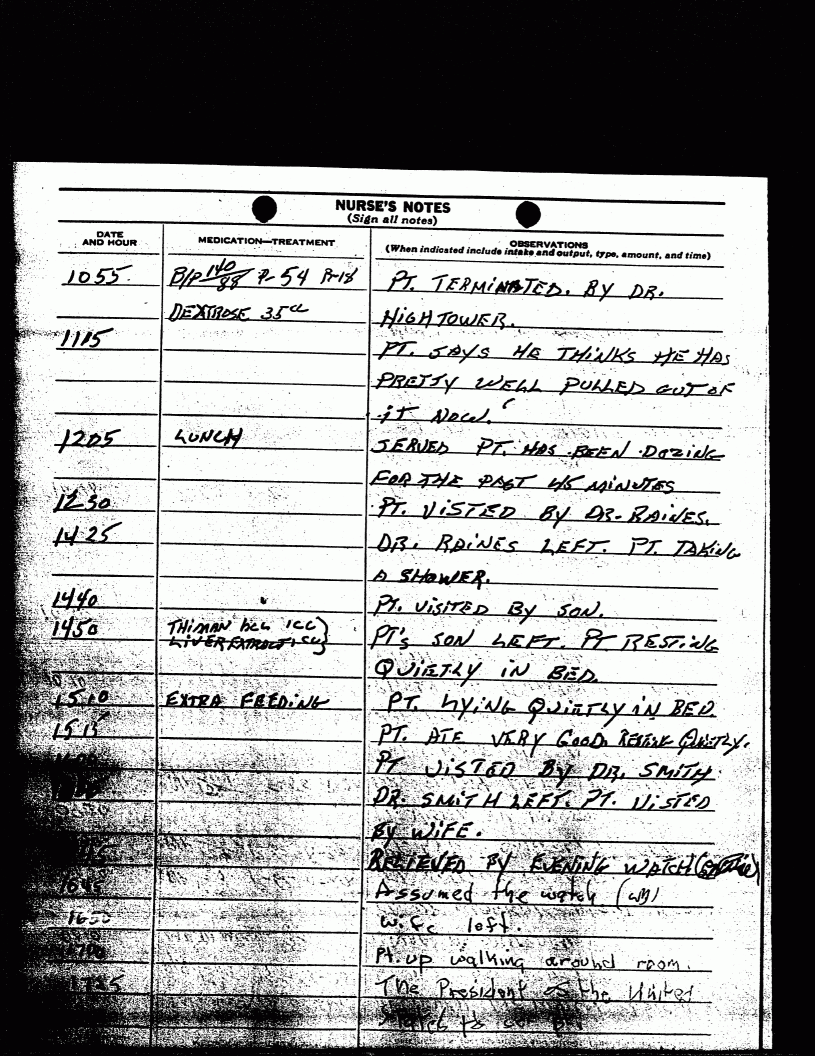 NURSE'S NOTES
(Sign all notes)
DATE AND HOUR MEDICATION—TREATMENT OBSERVATIONS
(When indicated include intake and output, type, amount, and time)
1055 B/P 140/88 P-54 R-18 PT. TERMINATED. BY DR.
DEXTROSE 35cc HIGHTOWER.
1115 PT. SAYS HE THINKS HE HAS
PRETTY WELL PULLED OUT OF
IT NOW.
1205 LUNCH SERVED PT. HAS BEEN DOZING
FOR THE PAST 45 MINUTES
1230 PT. VISTED BY DR. RAINES.
1425 DR. RAINES LEFT. PT. TAKING
A SHOWER.
1440 PT. VISITED BY SON.
1450 1CC PT'S SON LEFT. PT RESTING
LIVER EXTRACT 1CC QUIETLY IN BED.
1510 EXTRA FEEDING PT. LYING QUIETLY IN BED.
1515 PT. ATE VERY GOOD. RESTING QUIETLY.
PT VISTED BY DR. SMITH
DR. SMITH LEFT. PT. VISTED
BY WIFE.
RELIEVED BY EVENING WATCH
1645 Assumed the watch
1650 left.
1700 Pt. up walking around room.
1725 The President of the United